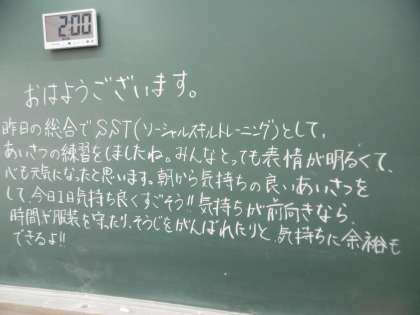 2:00
おはようございます。
昨日の総合でSST(ソーシャルスキルトレーニング)として、
あいさつの練習をしましたね。みんなとっても表情が明るくて、
心も元気になったと思います。朝から気持ちの良いあいさつを
して、今日1日気持ち良くすごそう!!気持ちが前向きなら、
時間や服装を守ったり、そうじをがんばれたりと、気持ちに余裕も
できるよ!!